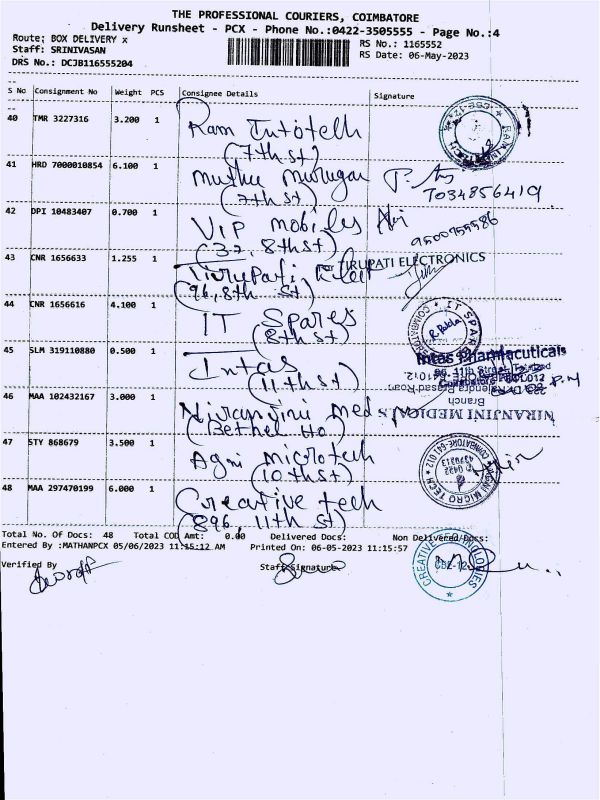 THE PROFESSIONAL COURIERS, COIMBATORE
Delivery Runsheet - PCX - Phone No.:0422-3505555 - Page No.:4
Route: BOX DELIVERY x
RS No.: 1165552
Staff: SRINIVASAN
RS Date: 06-May-2023
DRS No.: DCJB116555204
S No Consignment No Weight PCS Consignee Details Signature
40 TMR 3227316 3.200 1 Ram Infotech
(7th st)
41 HRD 7000010854 6.100 1 Muthu Murugan
(7th st)
7034856419
42 DPI 10483407 0.700 1 VIP mobiles
(32, 8th st)
9500955586
43 CNR 1656633 1.255 1 Tirupati Elect
(96, 8th st)
TIRUPATI ELECTRONICS
44 CNR 1656616 4.100 1 IT Spares
(8th st)
IT SPARES
COIMBATORE
45 SLM 319110880 0.500 1 Intas
(11th st)
Intas Pharmacuticals
46 MAA 102432167 3.000 1 Niranjini Med
(Bethel Ho)
NIRANJINI MEDICALS
Branch
47 STY 868679 3.500 1 Agni Microtech
(10th st)
AGNI MICRO TECH
COIMBATORE-641 012
0422
4379313
48 MAA 297470199 6.000 1 Creative tech
(896, 11th st)
Total No. Of Docs: 48 Total COD Amt: 0.00 Delivered Docs: Non Delivered Docs:
Entered By :MATHANPCX 05/06/2023 11:15:12 AM Printed On: 06-05-2023 11:15:57
Verified By Staff Signature
CREATIVE TECHNOLOGIES
CBE-12